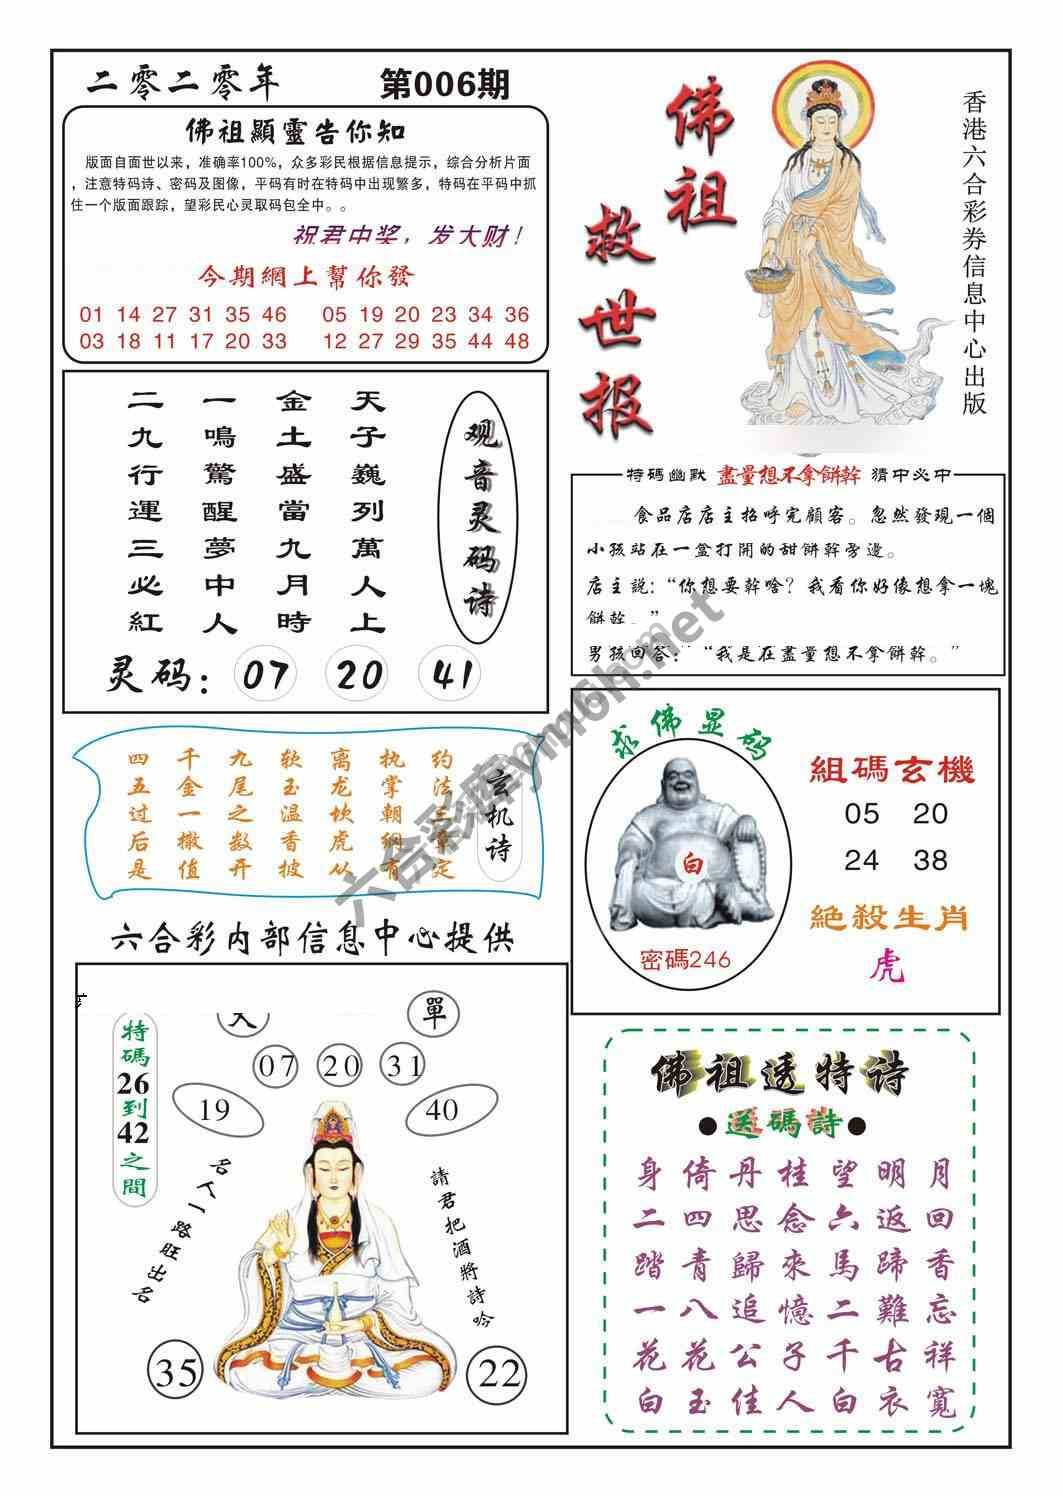 二零二零年
第006期
佛祖顯靈告你知
版面自面世以来，准确率100%，众多彩民根据信息提示，综合分析片面
，注意特码诗、密码及图像，平码有时在特码中出现繁多，特码在平码中抓
住一个版面跟踪，望彩民心灵取码包全中。。
祝君中奖，发大财！
今期網上幫你發
01 14 27 31 35 46
05 19 20 23 34 36
03 18 11 17 20 33
12 27 29 35 44 48
佛祖救世报
香港六合彩券信息中心出版
观音灵码诗
天子巍列萬人上
金土盛當九月時
一鳴驚醒夢中人
二九行運三必紅
灵码：07 20 41
特碼幽默 盡量想不拿餅幹 猜中必中
食品店店主招呼完顧客。忽然發現一個
小孩站在一盆打開的甜餅幹旁邊。
店主説：“你想要幹啥？我看你好像想拿一塊
餅幹。”
男孩回答：“我是在盡量想不拿餅幹。”
玄机诗
约法三章定
执掌朝纲有
离龙坎虎从
软玉温香披
九尾之数开
千金一撒值
四五过后是
求佛显码
白
密碼246
組碼玄機
05 20
24 38
絕殺生肖
虎
六合彩内部信息中心提供
特碼26到42之間
單
07
20
31
19
40
名人一路旺出名
請君把酒將詩吟
35
22
佛祖透特诗
●送碼詩●
身倚丹桂望明月
二四思念六返回
踏青歸來馬蹄香
一八追憶二難忘
花花公子千古祥
白玉佳人白衣寬